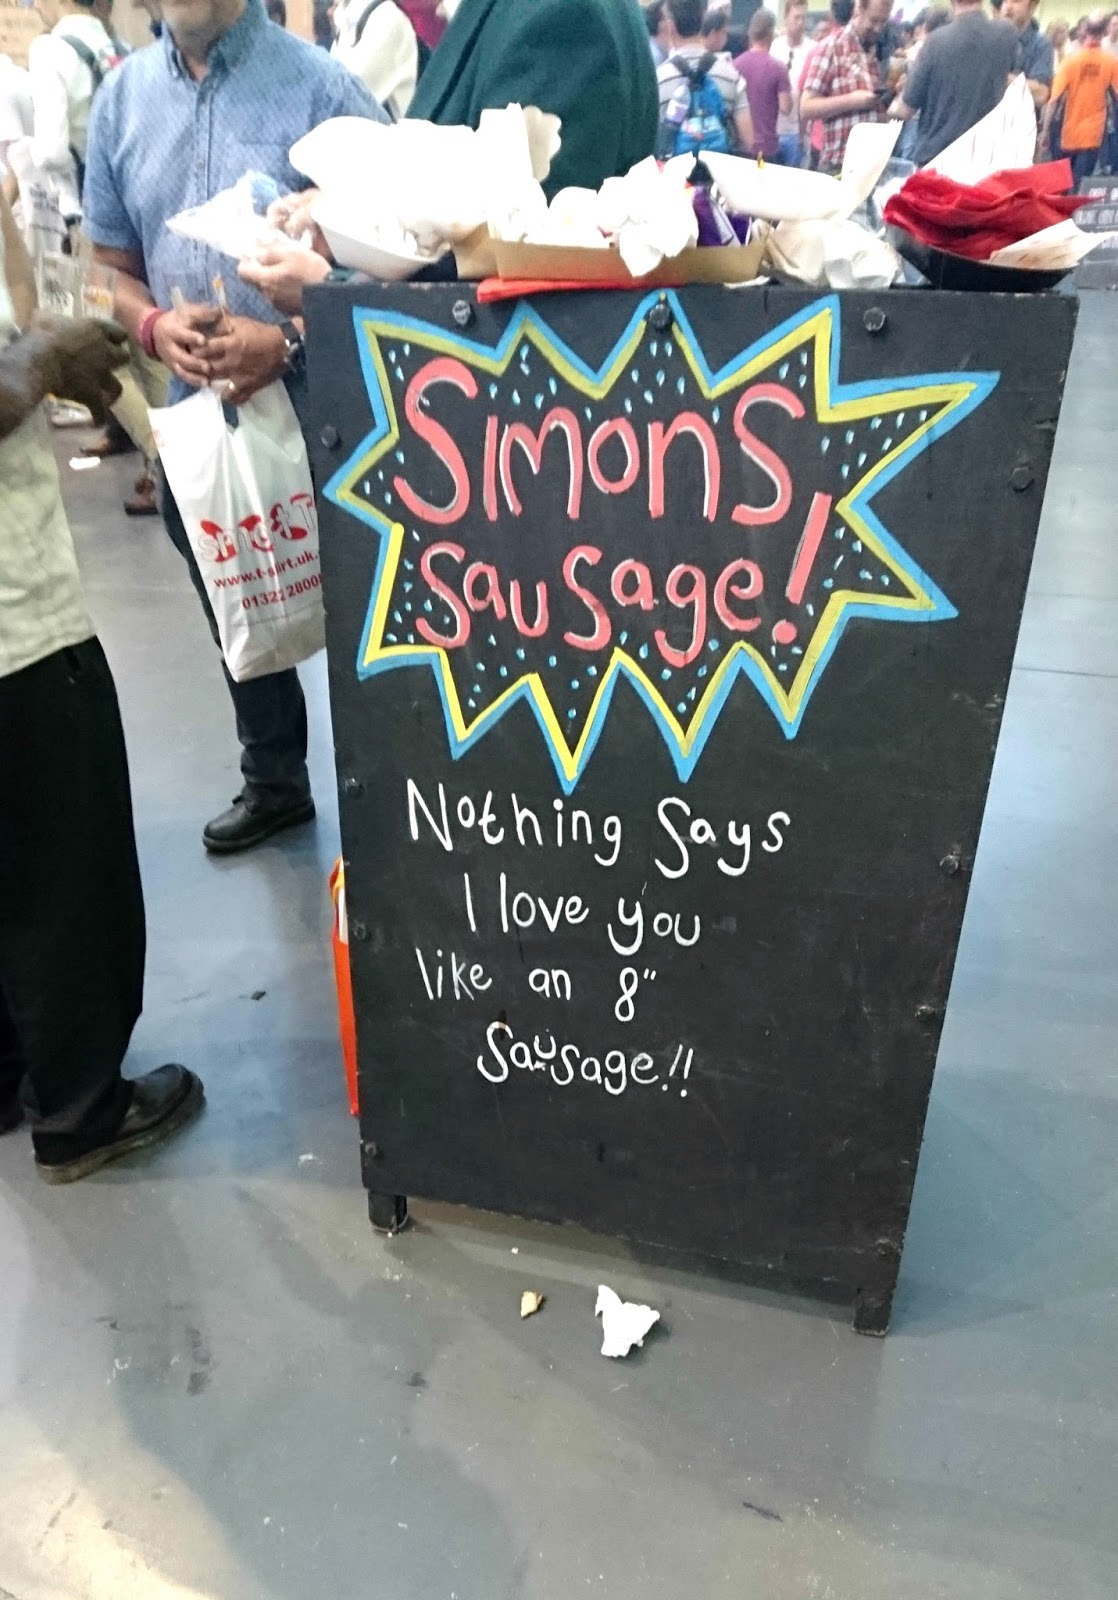 SIMONS
Sausage!
Nothing Says
I love you
like an 8"
Sausage!!
www.t-shirt.uk.